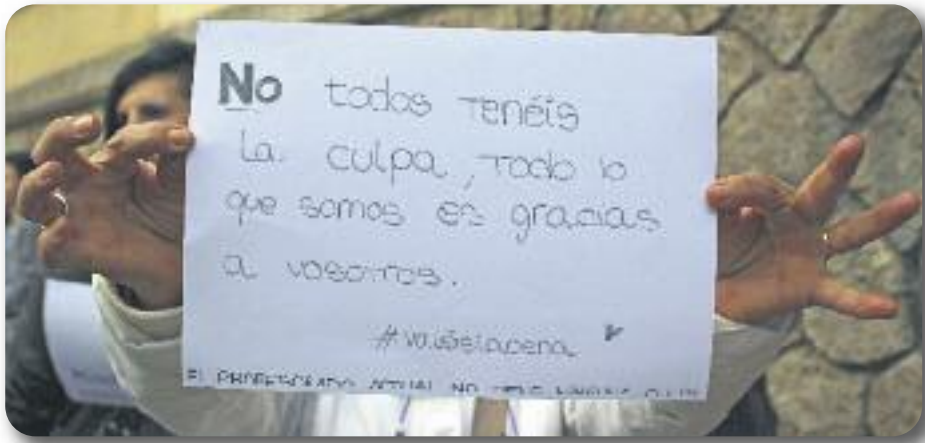 No todos tenéis
la culpa, todo lo
que somos es gracias
a vosotros.
#valéislapena
EL PROFESORADO ACTUAL NO TIENE NINGUNA CULPA